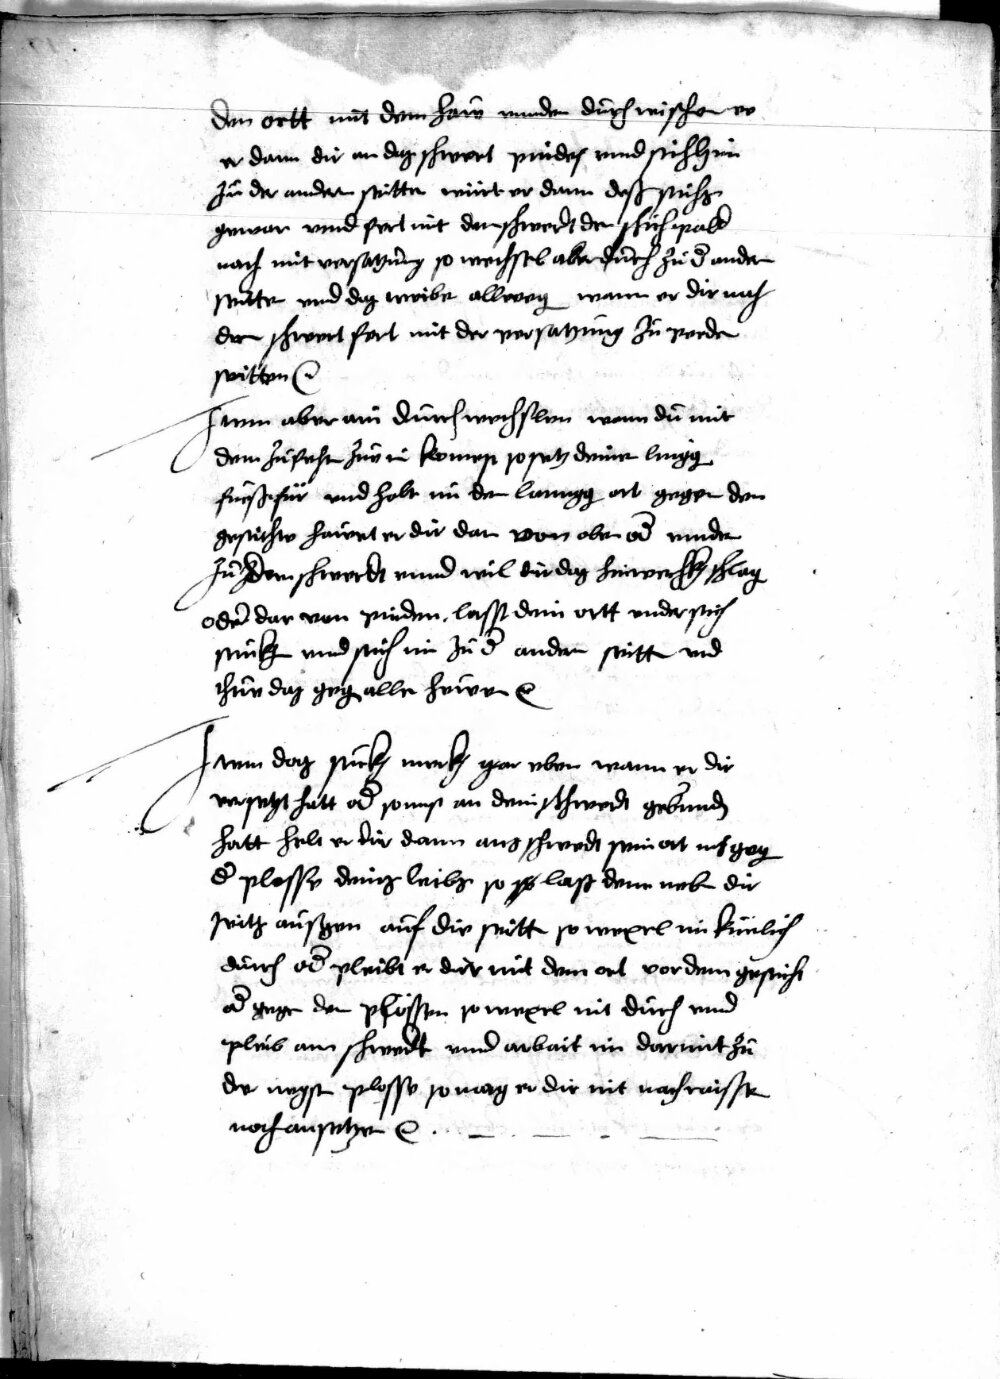 den ortt mit dem haw unden durch wischen ee
er dann dir an das schwert pindet unnd stich Im
zu der andern seitten würt er dann deß stichs
gewar unnd fert mit dem schwert dem stich pald
nach mit versatzung so wechsel aber durch zu d andern
seitte und das treibe allweg wann er dir nach
dem schwert fert mit der versatzung zu peede
seitten
Item aber ain durchwechslen wann du mit
dem zufechte zu im komest so setz deinen lingg
fuess für und halt im den langg ort gegen dem
gesichte hawet er dir dan von oben od unde
zu dem schwerdt unnd wil dir das hinwechk schlag
oder dar von pinden lasst dein ortt under sich
sinckn unnd stich im zu d andern seitt und
thue das geg alle hewe
Item das stuck merck gar eben wann er dir
versetzt hatt od sonnst an dein schwerdt gebunde
hatt helt er dir dann ans schwerdt sein ort nit geg
d plosse deins leibs so last denn neben dir
seitz aussgen auf die seitt so wexel im künlich
durch od pleibt er dir mit dem ort vor dem gesicht
od gege der plössen so wexel nit durch unnd
pleib am schwerdt unnd arbait im darmit zu
der negst plosse so mag er dir nit nachraisse
noch ansetzen